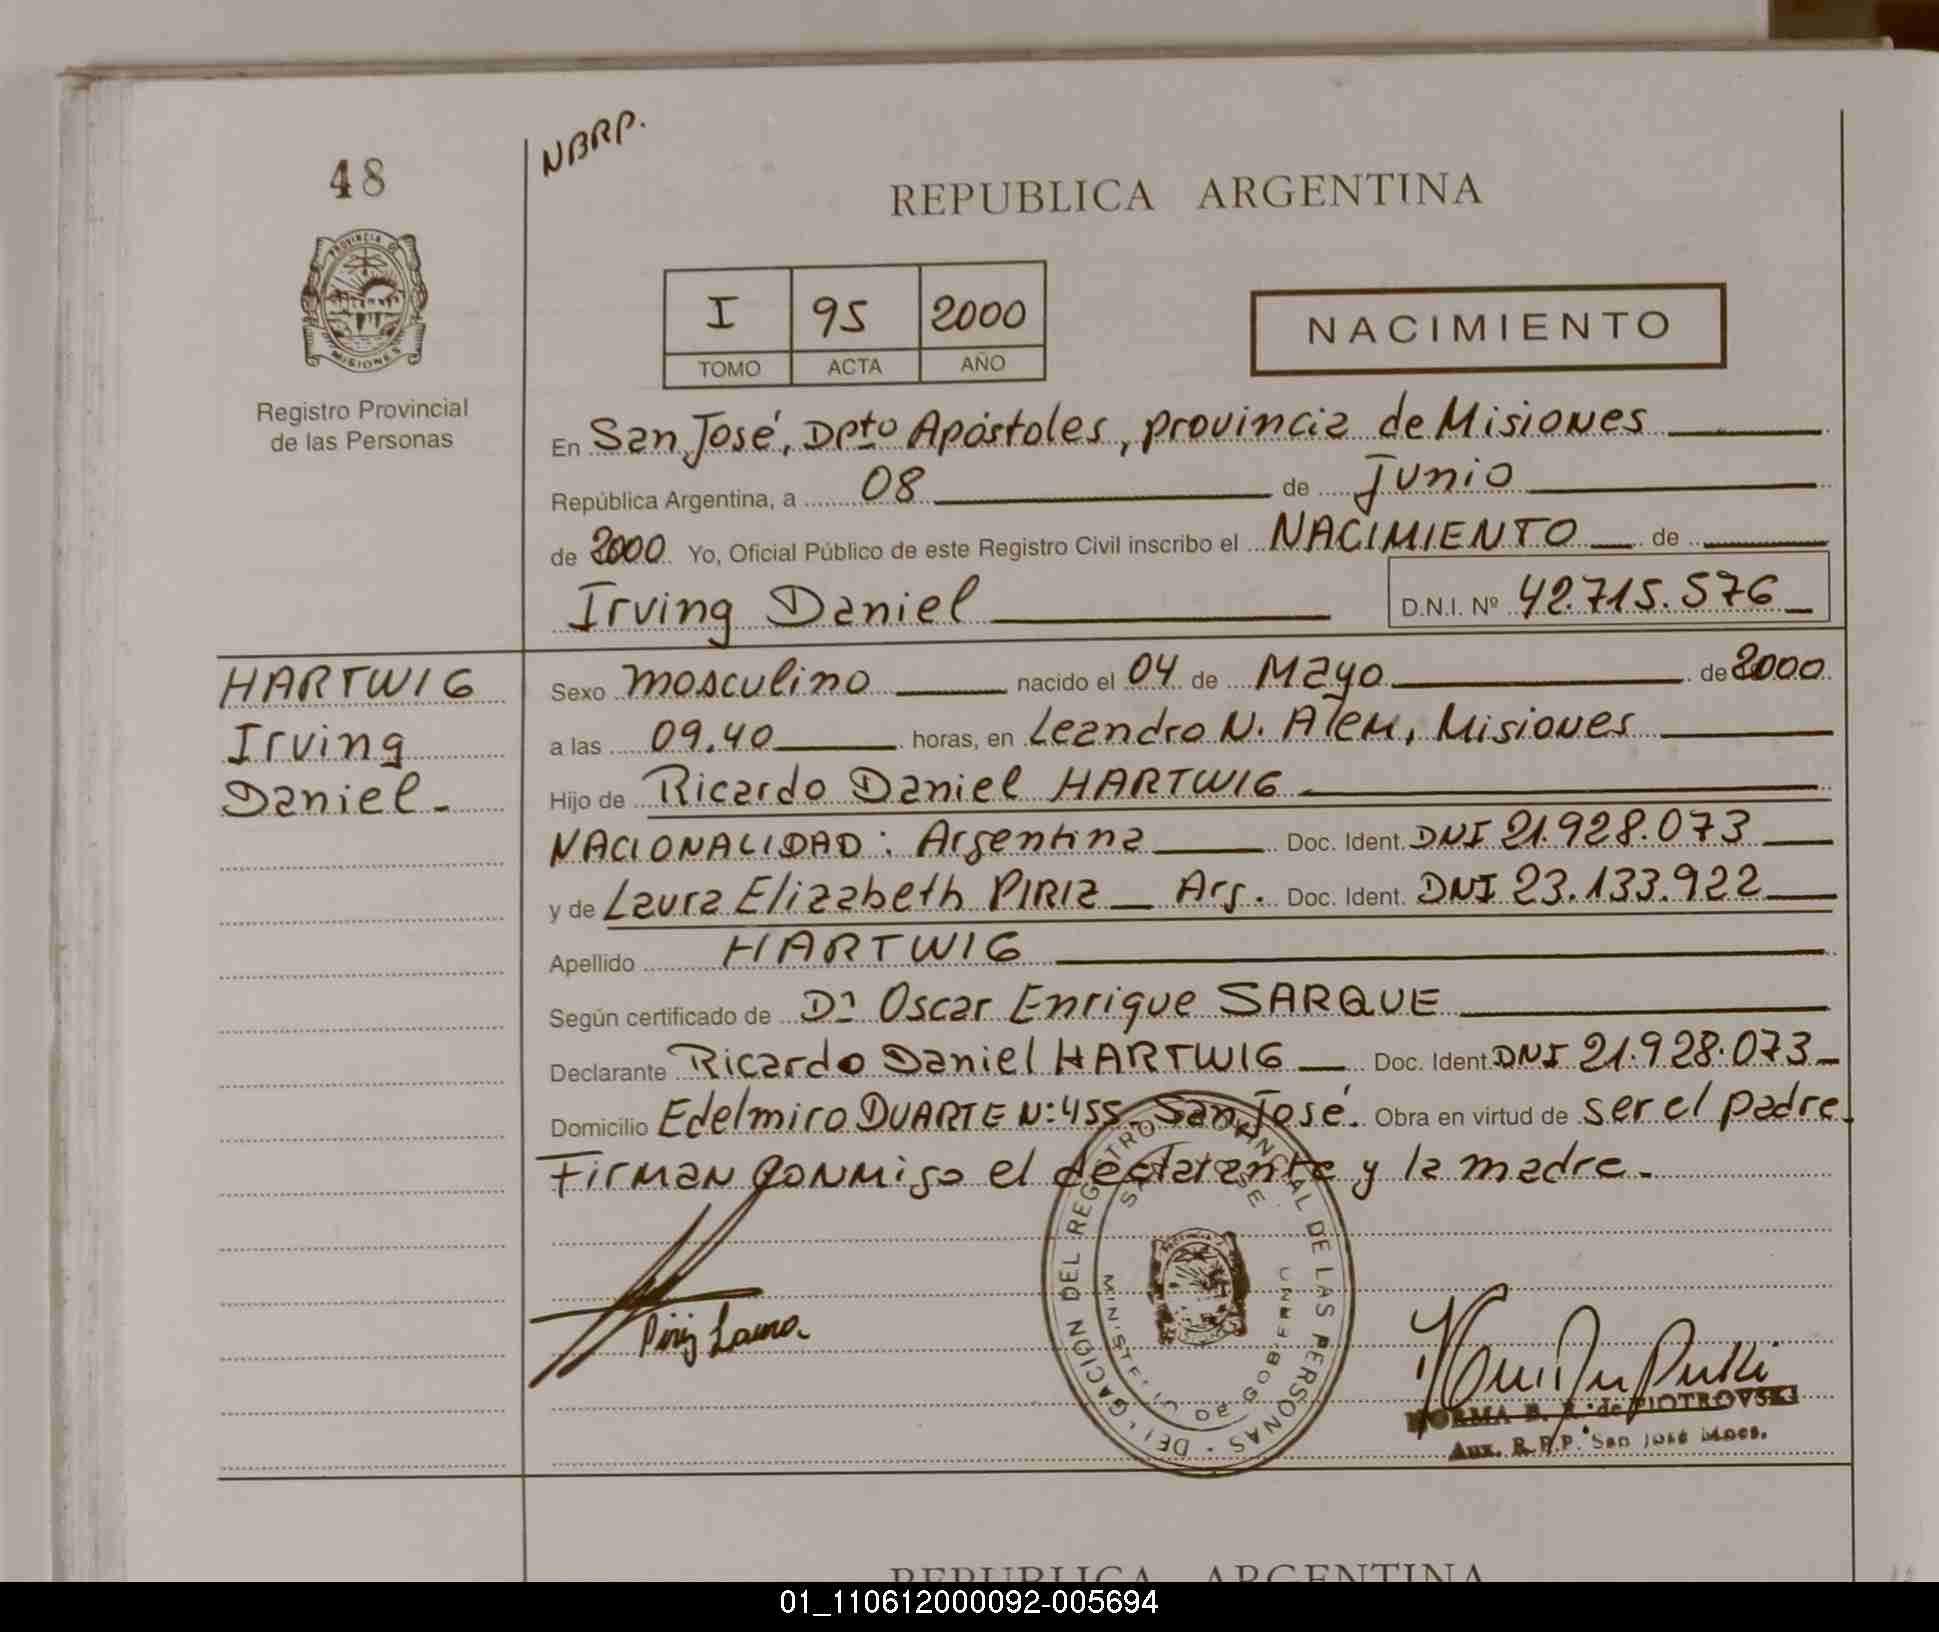 48
NBRP.
REPUBLICA ARGENTINA
PROVINCIA DE
MISIONES
Registro Provincial
de las Personas
I 95 2000
TOMO ACTA AÑO
NACIMIENTO
En San José, Dpto Apóstoles, provincia de Misiones
República Argentina, a 08 de Junio
de 2000 Yo, Oficial Público de este Registro Civil inscribo el NACIMIENTO de
Irving Daniel D.N.I. Nº 42.715.576
HARTWIG
Irving
Daniel.
Sexo masculino nacido el 04 de Mayo de 2000
a las 09.40 horas, en Leandro N. Alem, Misiones
Hijo de Ricardo Daniel HARTWIG
NACIONALIDAD: Argentina Doc. Ident. DNI 21.928.073
y de Laura Elizabeth PIRIZ Arg. Doc. Ident. DNI 23.133.922
Apellido HARTWIG
Según certificado de Dr Oscar Enrique SARQUE
Declarante Ricardo Daniel HARTWIG Doc. Ident. DNI 21.928.073
Domicilio Edelmiro DUARTE N:455 San José. Obra en virtud de ser el padre.
Firman conmigo el declarante y la madre.
Piriz Laura
DEL REGISTRO PROVINCIAL DE LAS PERSONAS
SAN JOSE
DE GOBIERNO
NORMA B. R. de PIOTROVSKI
Aux. R.P.P. San José Mnes.
REPUBLICA ARGENTINA
01_110612000092-005694